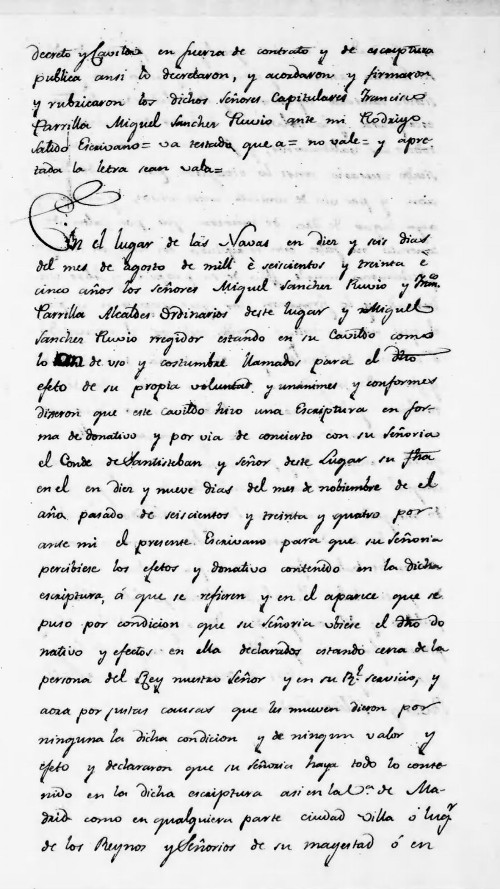 decreto y Cavildo en fuerza de contrato y de escriptura
publica ansi lo decretaron, y acordaron y firmaron
y rubricaron los dichos Señores Capitulares Francisco
Parrilla Miguel Sancher Ruvio ante mi Rodrigo
Salido Escrivano= va testado que a= no vale= y apre-
tada la letra sean vala=
En el lugar de las Navas en diez y seis dias
del mes de agosto de mill è seiscientos y treinta è
cinco años los señores Miguel Sancher Ruvio y Fran.co
Parrilla Alcaldes Ordinarios deste lugar y Miguel
Sancher Ruvio regidor estando en su Cavildo como
lo de uso y costumbre llamados para el dho
efeto de su propia voluntad y unanimes y conformes
dixeron que este cavildo hizo una Escriptura en for-
ma de donativo y por via de concierto con su señoria
el Conde de Santisteban y señor deste Lugar su fha
en el en diez y nueve dias del mes de nobiembre de el
año pasado de seiscientos y treinta y quatro por
ante mi el presente Escrivano para que su Señoria
percibiese los efetos y donativo contenido en la dicha
escriptura, á que se refieren y en el aparece que se
puso por condicion que su señoria ubiese el dho do
nativo y efectos en ella declarados estando cerca de la
persona del Rey nuestro Señor y en su R.l servicio, y
aora por justas causas que les mueven dieron por
ninguna la dicha condicion y de ningun valor y
efeto y declararon que su señoria haya todo lo conte
nido en la dicha escriptura asi en la V.a de Ma-
drid como en qualquiera parte ciudad villa ó lug.r
de los Reynos y Señorios de su magestad ó en